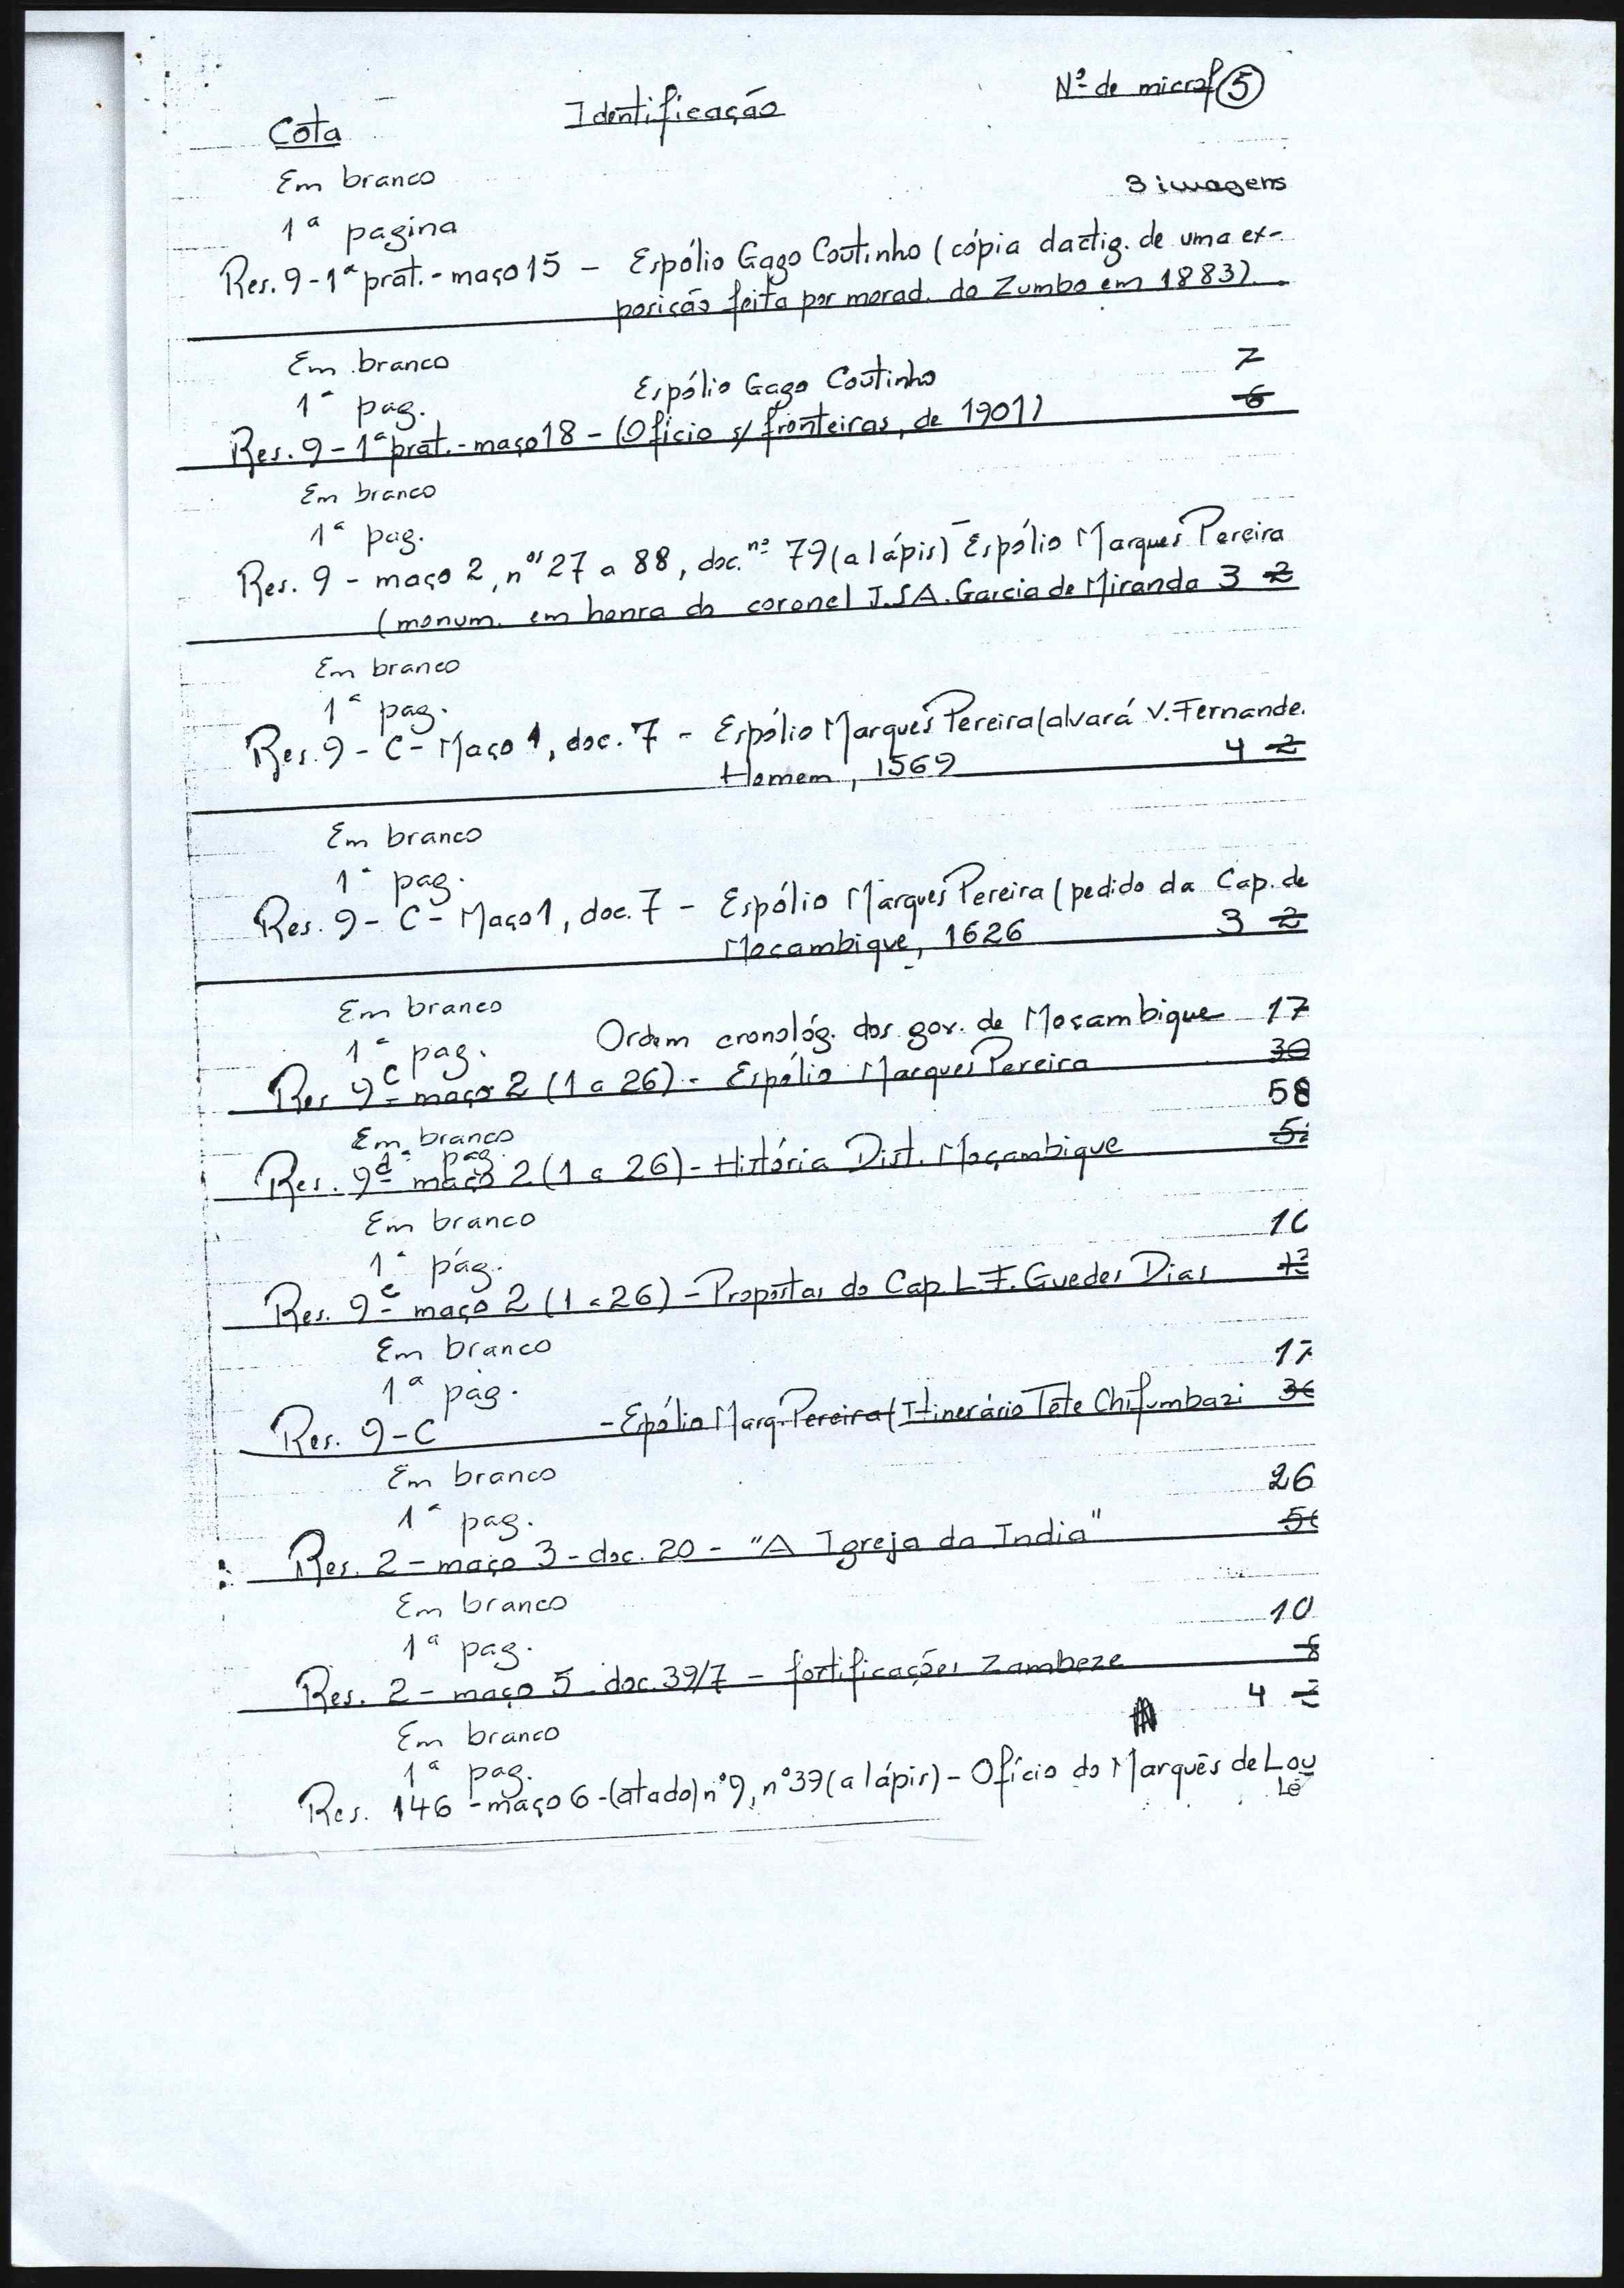 Nº de microf 5
Cota Identificação
Em branco
3 imagens
1ª pagina
Res. 9-1ª prat.- maço 15 – Espólio Gago Coutinho (cópia dactig. de uma ex-
posição feita por morad. do Zumbo em 1883).
Em branco 7
1ª pag. Espólio Gago Coutinho 6
Res. 9-1ª prat.- maço 18 – (Ofício s/ fronteiras, de 1901)
Em branco
1ª pag.
Res. 9 – maço 2, nºs 27 a 88, doc. nº 79 (a lápis) – Espólio Marques Pereira
(monum. em honra do coronel J.S.A. Garcia de Miranda 3 2
Em branco
1ª pag.
Res. 9 – C – Maço 1, doc. 7 – Espólio Marques Pereira (alvará V. Fernande.
Homem, 1569 4 2
Em branco
1ª pag.
Res. 9 – C – Maço 1, doc. 7 – Espólio Marques Pereira (pedido da Cap. de
Moçambique, 1626 3 2
Em branco
1ª pag. Ordem cronológ. dos gov. de Moçambique 17
Res 9 C – maço 2 (1 a 26) – Espólio Marques Pereira 30
58
Em branco
1ª pag.
Res. 9 C – maço 2 (1 a 26) – História Dist. Moçambique
Em branco
1ª pág.
Res. 9 C – maço 2 (1 a 26) – Propostas do Cap. L. F. Guedes Dias
Em branco
1ª pág.
Res. 9-C – Espólio Marq. Pereira (Itinerário Tete Chifumbazi
Em branco 26
1ª pag.
Res. 2 – maço 3 – doc. 20 – "A Igreja da India"
Em branco 10
1ª pag. 8
Res. 2 – maço 5 – doc. 39/7 – fortificações Zambeze
4
Em branco
1ª pag.
Res. 146 – maço 6 – (atado) nº 9, nº 39 (a lápis) – Ofício do Marquês de Lou
Lé